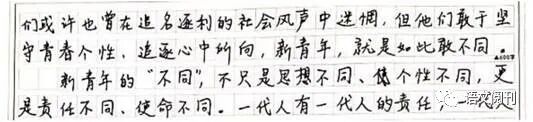 们或许也曾在追名逐利的社会风声中迷惘，但他们敢于坚
守青春个性、追逐心中所向，新青年，就是如此敢不同。
▲600字
新青年的“不同”，不只是思想不同、个性不同，更
是责任不同、使命不同。一代人有一代人的责任，一代人
语文周刊